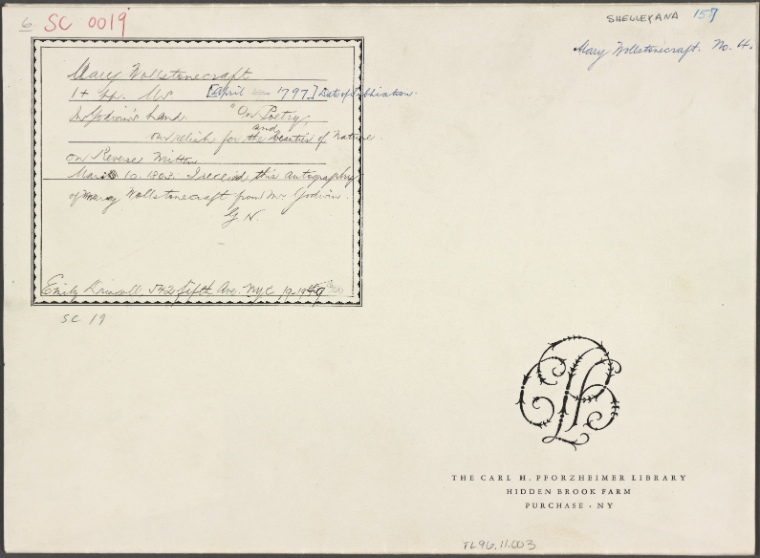 6 SC 0019
SHELLEYANA 157
Mary Wollstonecraft. No. 4.
Mary Wollstonecraft
1+ pp. Ms [April 1797] Date of Publication.
In Godwin's hand "On Poetry,
and
our relish for the beauties of Nature
on Reverse written
Mar. 10. 1803. I received this autography
of Mary Wollstonecraft from Mr. Godwin.
G. N.
Emily Driscoll, 542 Fifth Ave. NYC 1949
SC 19
THE CARL H. PFORZHEIMER LIBRARY
HIDDEN BROOK FARM
PURCHASE · NY
TL96.11.003